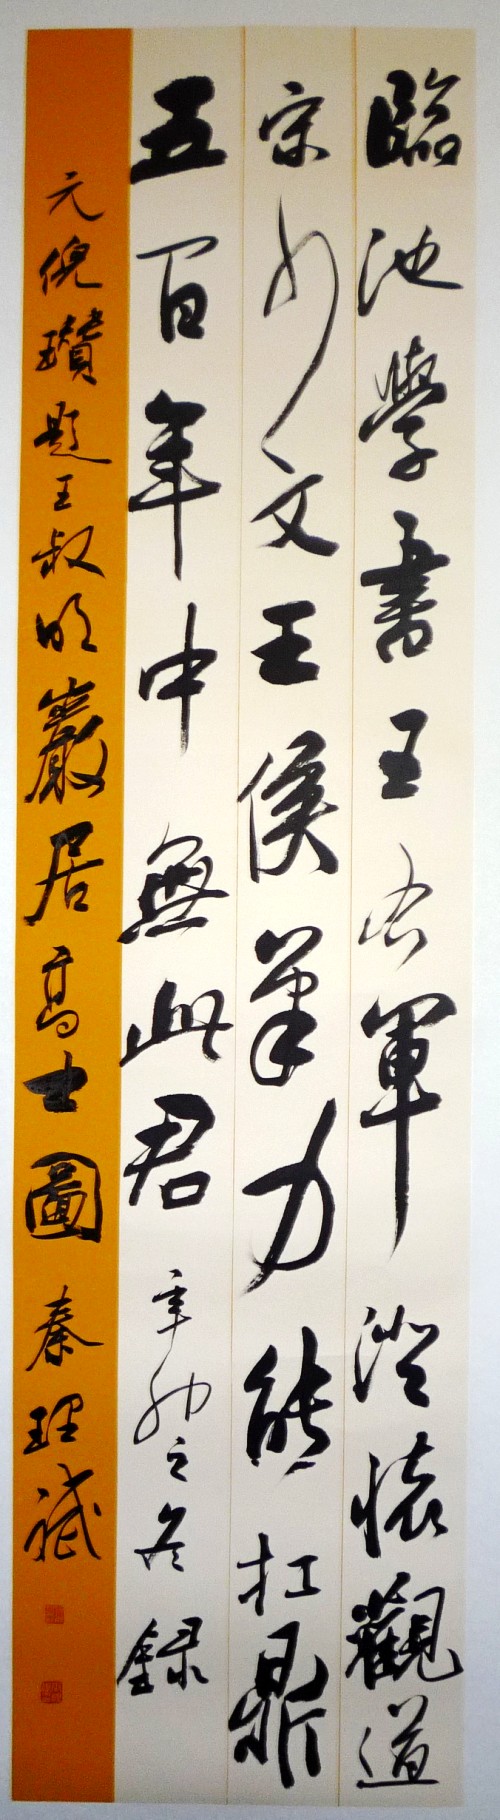 臨池學書王右軍澄懷觀道
宗少文王侯筆力能扛鼎
五百年中無此君 辛卯之冬錄
元倪瓚題王叔明巖居高士圖 秦理斌